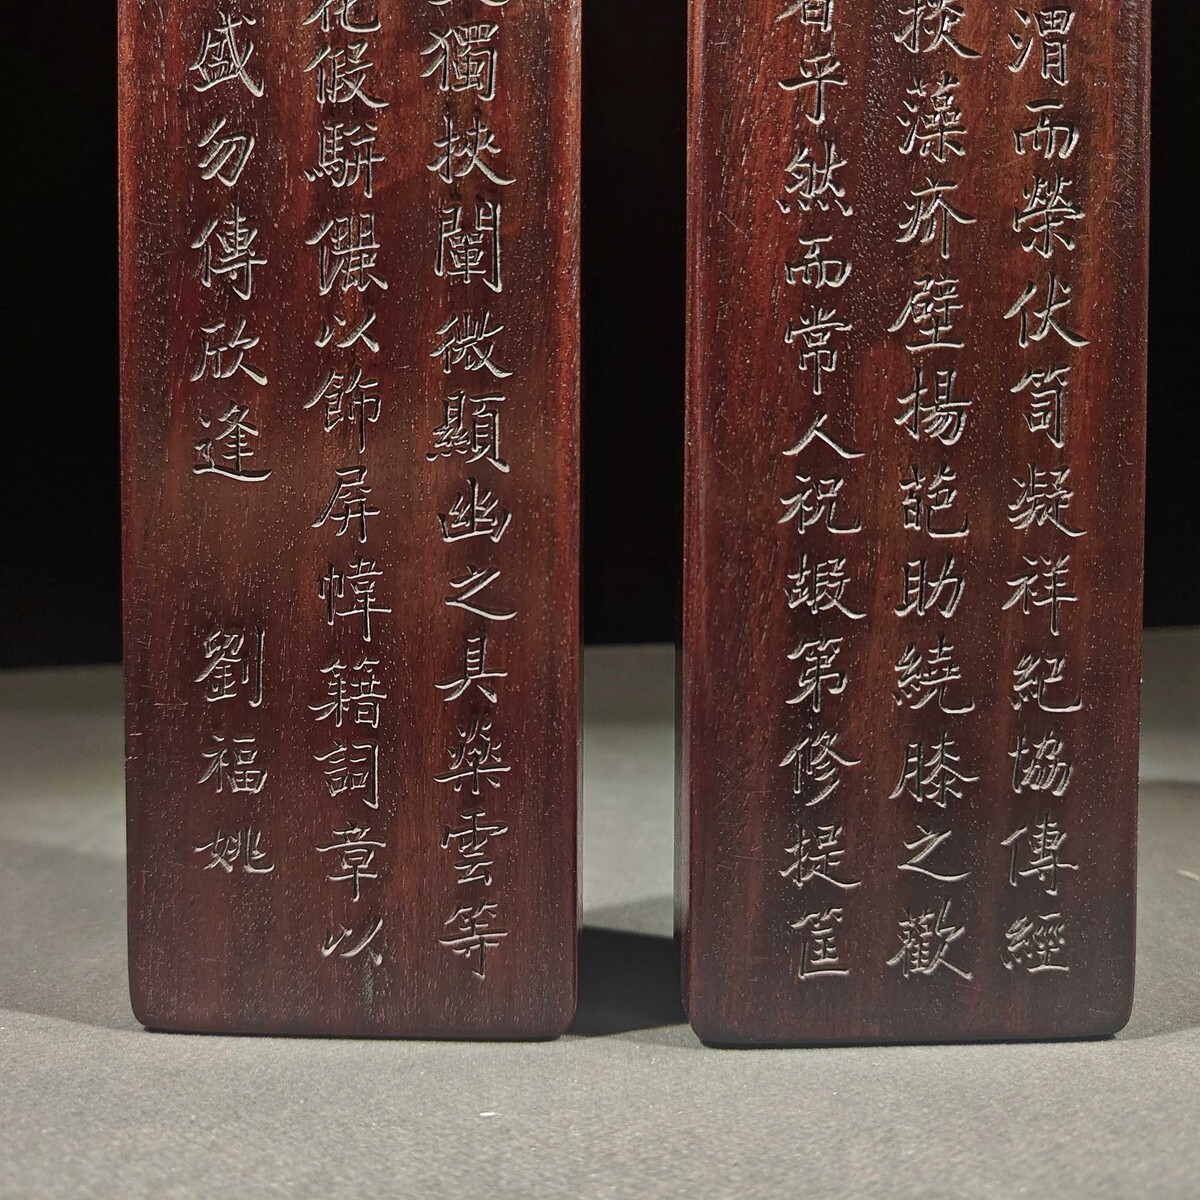 渭而榮伏笥凝祥紀協傳經
掞藻疥壁揚葩助繞膝之歡
者乎然而常人祝嘏第修提筐
獨挾闡微顯幽之具藥雲等
花假駢儷以飾屏幛籍詞章以
盛勿傳欣逢 劉福姚